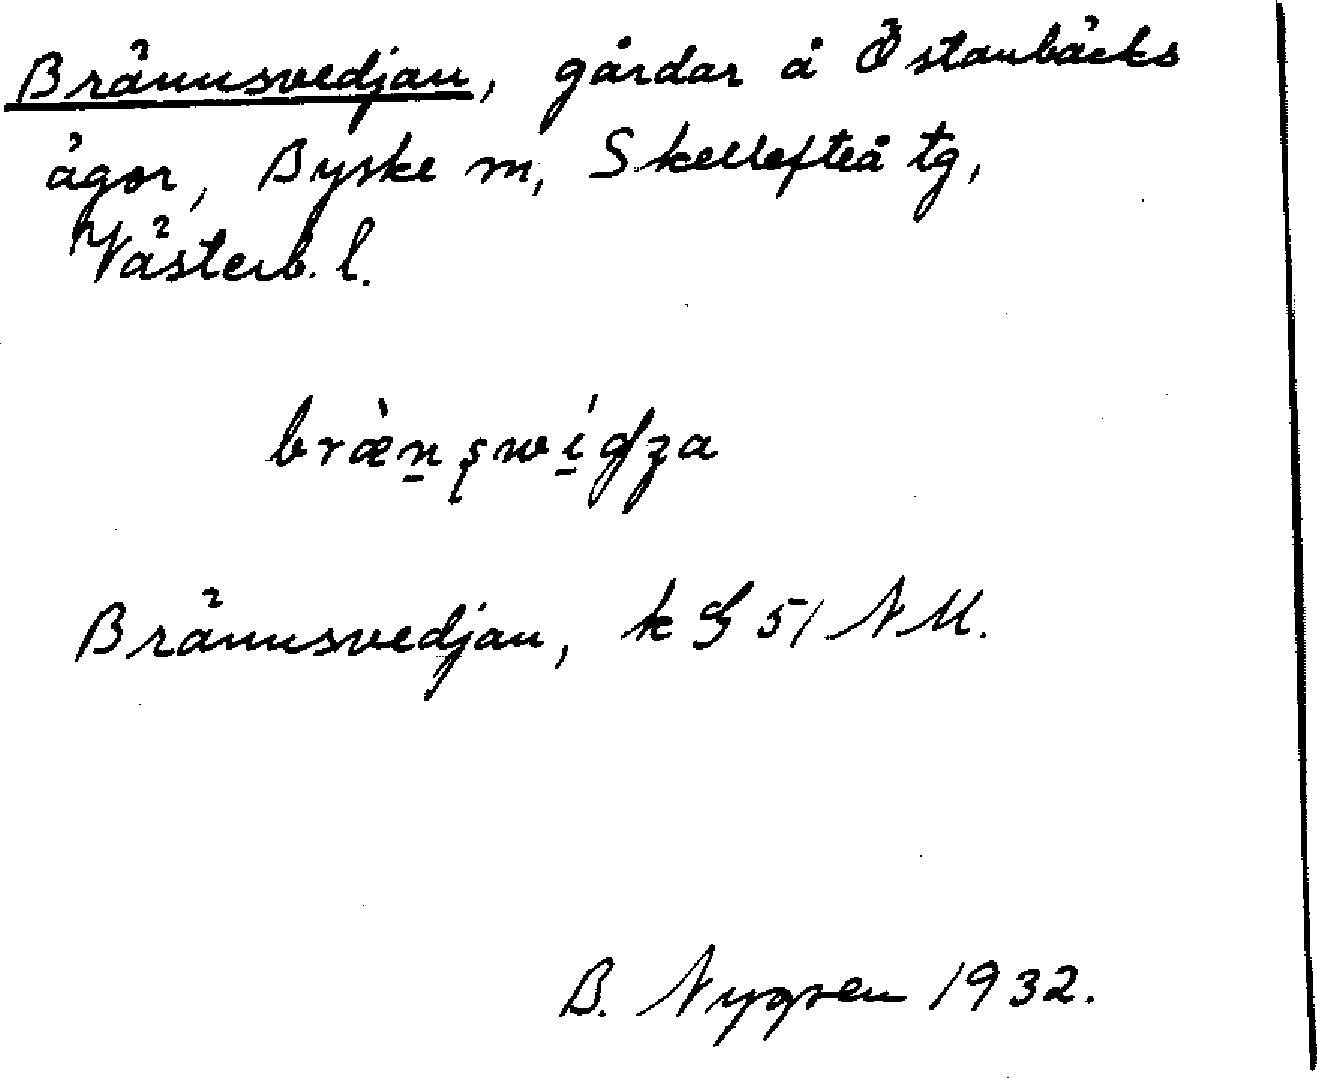 Brännsvedjan, gårdar å Östanbäcks
ägor, Byske sn, Skellefteå tg,
Västerb. l.
bræ̀n̲ʂwí̲dʒa
Brännsvedjan, k G 51 NM.
B. Nygren 1932.